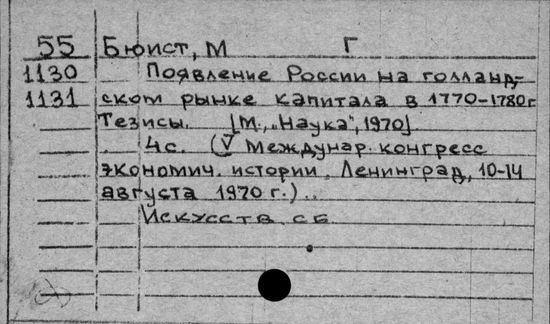 55 Бюист, М Г
1130 Появление России на голланд-
1131 ском рынке капитала в 1770-1780г
Тезисы. [М., „Наука", 1970]
4с. (V Междунар. конгресс
экономич. истории. Ленинград, 10-14
августа 1970 г.)..
Искусств. сб